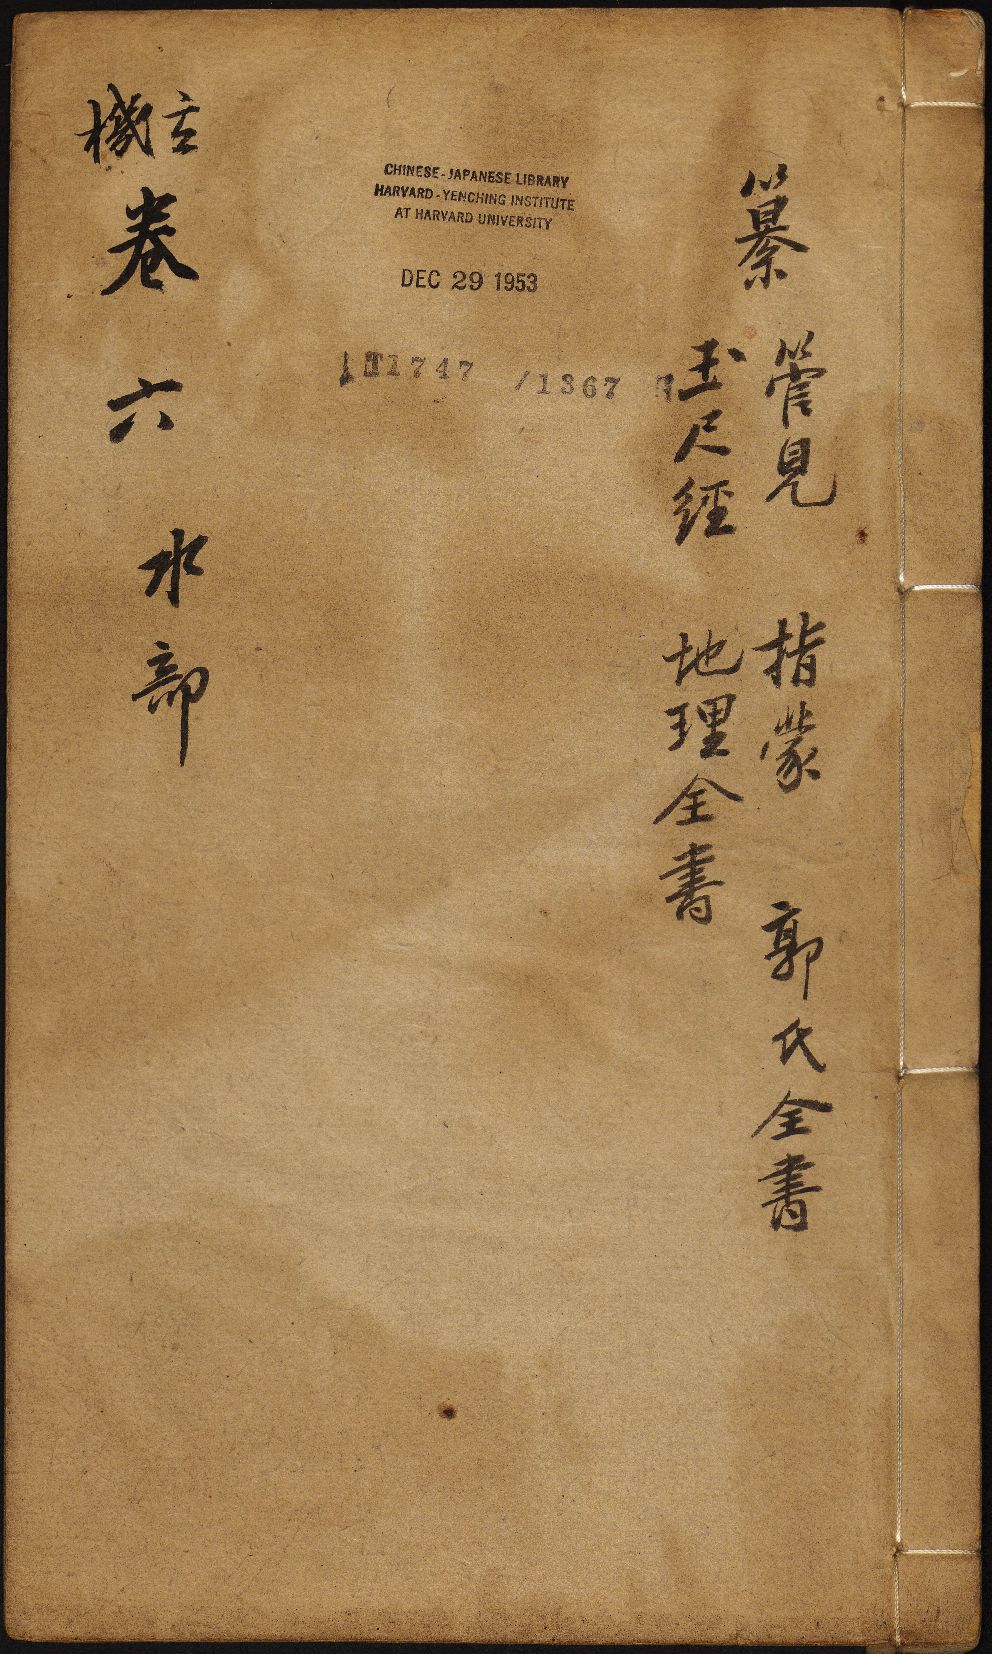 纂
管見 指蒙 郭氏全書
玉尺經 地理全書
CHINESE-JAPANESE LIBRARY
HARVARD-YENCHING INSTITUTE
AT HARVARD UNIVERSITY
DEC 29 1953
1747 /1367
玄機
卷六 水部